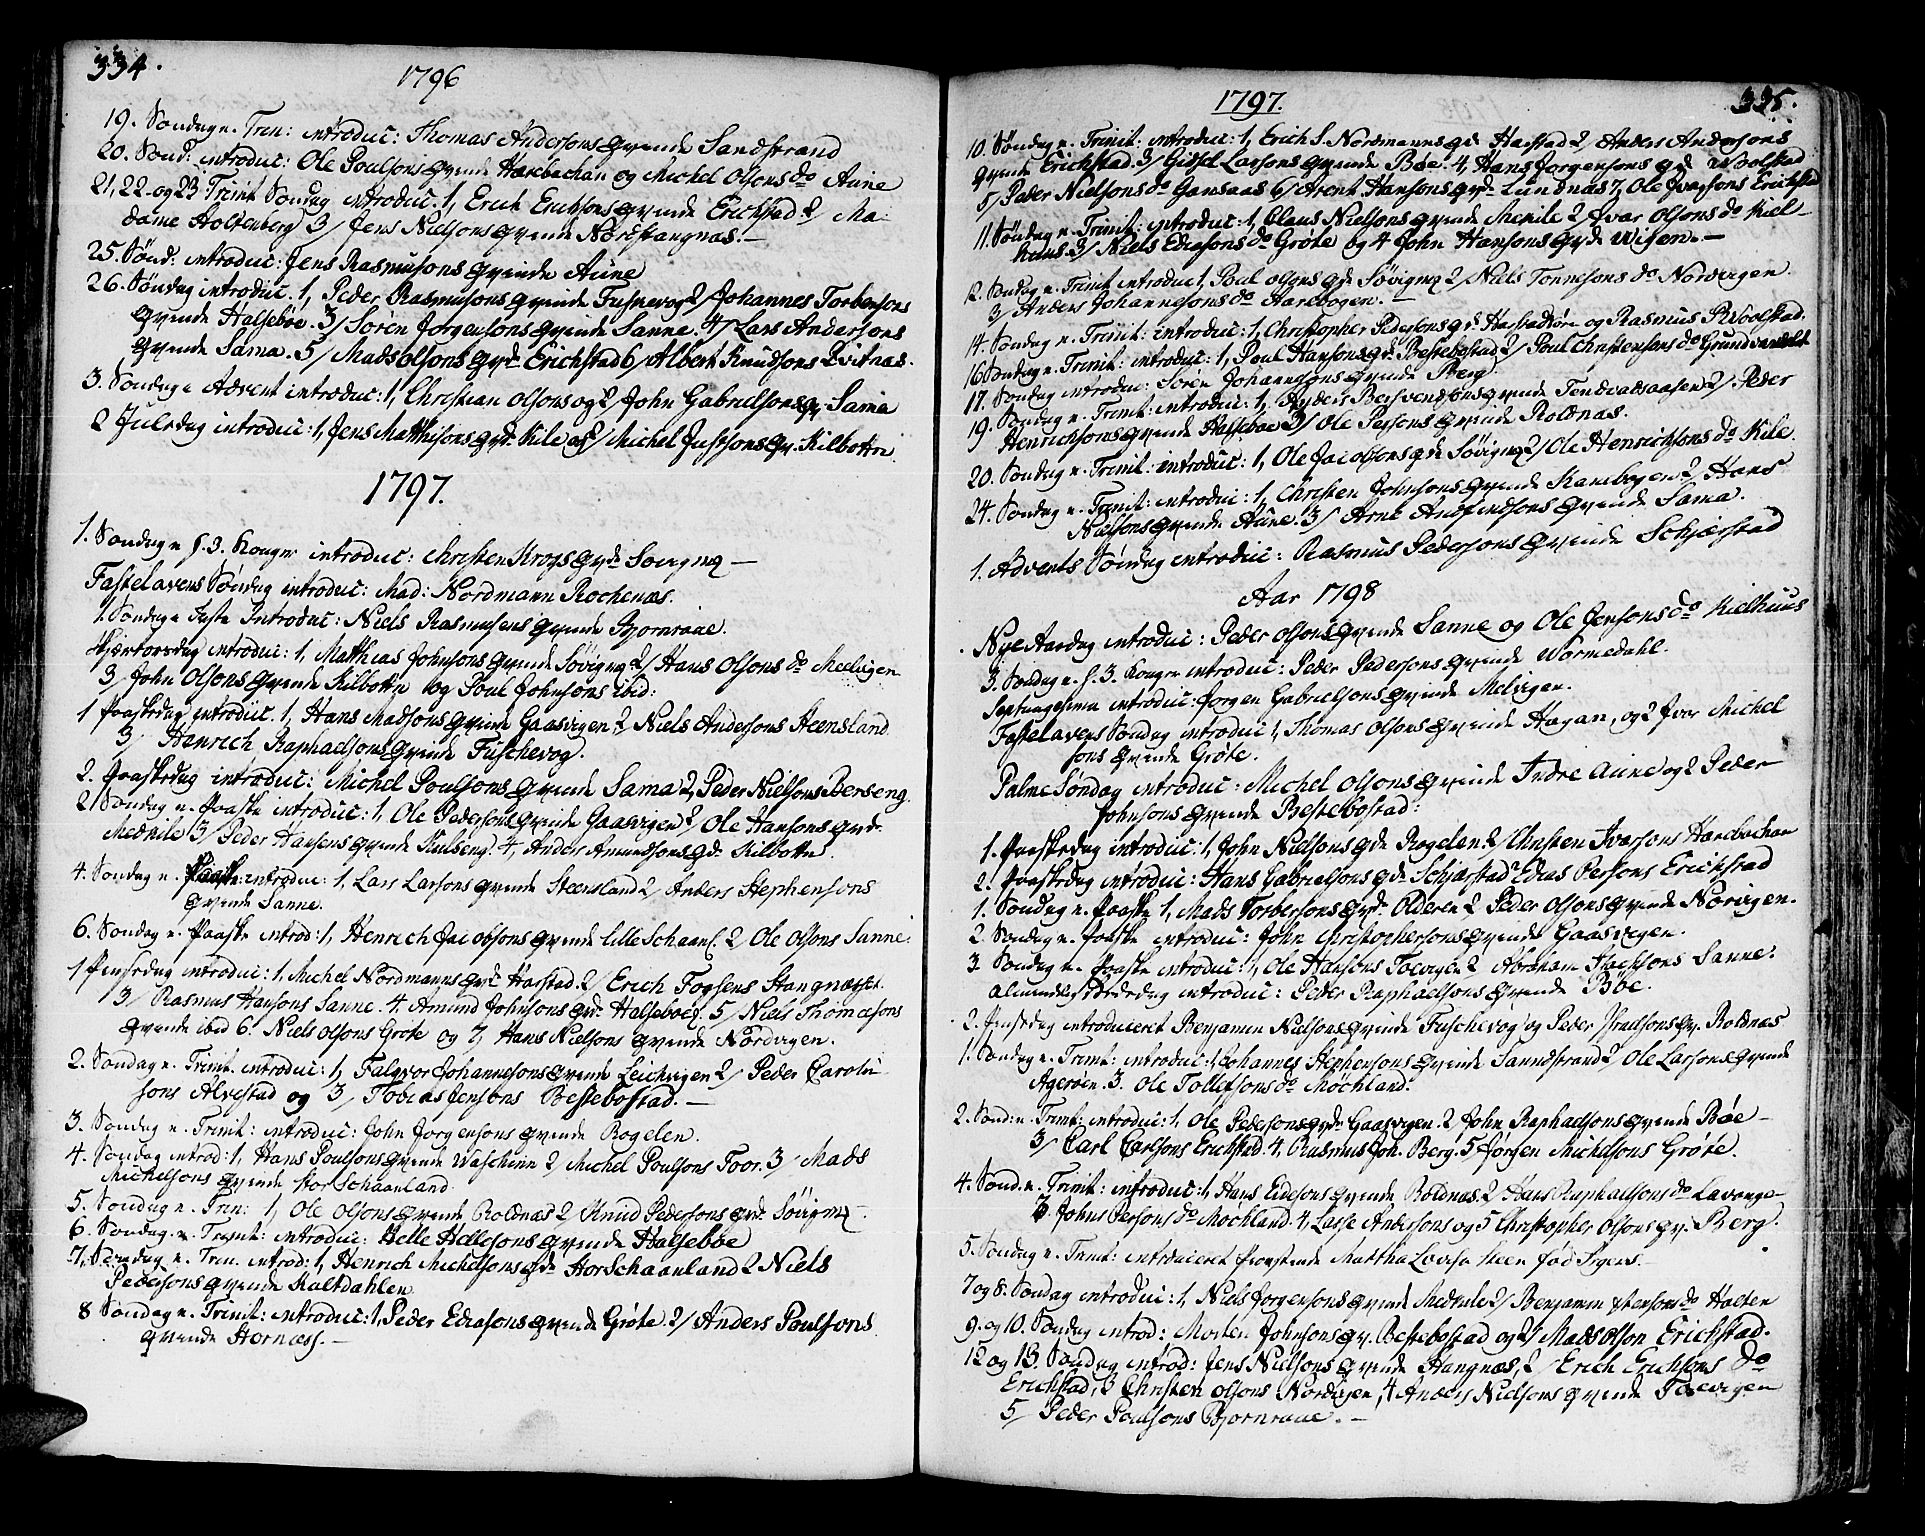 334.
1796
19. Søndag n. Tren: introduc: Thomas Andersons qvinde Sandstrand
20. Sønd: introduc: Ole Poulsons qvinde Harebachan og Michel Olsons do Aune
21, 22 og 23 Trinit Søndag introduc. 1, Erich Erichsons qvinde Erichstad 2/ Ma-
dame Holtenberg 3/ Jens Nielsons qvinde Nordstangnas.—
25. Sønd: introduc: Jens Rasmusons qvinde Aune
26. Søndag introduc. 1, Peder Rasmusons qvinde Fuskevog 2/ Johannes Torbersons
qvinde Halsebøe. 3/ Sørén Jorgensons qvinde Sanne. 4/ Lars Andersons
qvinde Sama. 5/ Mads olsons qvd Erichstad 6/ Albert Knudsons Qvitnas.
3. Søndag n Advent introduc: 1, Christian olsons og 2 John Gabrielsons qv Sama
2 Juledag introduc: 1, Jens Matthisons qvd. Kile og 2/ Michel Jussons qv. Kilbotten
1797.
1. Søndag n h. 3. Konger introduc: Christen Krogs qvd Sovigen —
Fastelavens Søndag introduc: Mad: Nordmann Rochenæs.
1. Søndag n Faste Introduc: Niels Rasmusens qvinde Bjornraae.
Skjertorsdag introduc: 1, Matthias Johnsons qvinde Søvigen 2/ Hans Olsons do Meelvigen
3/ John Olsons qvinde Kilbotten og Poul Johnsons ibid:
1 Paaskedag introduc. 1, Hans Madsons qvinde Gaasvigen 2 Niels Andersons Steensland
3/ Henrich Raphaelsons qvinde Fuschevog.
2. Paaskedag introduc: Michel Poulsons qvinde Sama 2, Peder Nielsons Berseng.
2 Søndag n. Paaske introduc: 1, Ole Pedersons qvinde Gaasvigen 2/ Ole Hansons qvd.
Medkile 3/ Peder Hansens qvinde Kulseng. 4, Anders Amundsons qd. Kilbotten.
4. Søndag n. Paaske: introduc: 1, Lars Larsons qvinde Steensland 2 Anders Stephensons
qvinde Sanne.
6. Søndag n. Paaske introd: 1, Henrich Jacobsons qvinde lille Schaanl. 2 Ole Olsons Sanne.
1 Pinsedag introduc: 1. Michel Nordmanns qvd Harstad. 2/ Erich Fogsens Stangnæsset.
3/ Rasmus Hansons Sanne. 4. Amund Johnsons qvd. Halsebøe. 5/ Niels Thomesons
qvinde ibid 6. Niels olsons Grote og 7, Hans Nielsons qvinde Nordvigen.
2. Søndag n. Trinit. introduc: 1, Falqvor Johannesons qvinde Leichvigen 2/ Peder Caroli
sons Alvestad og 3/ Tobias Jensons Bestebostad.—
3. Søndag n. Trinit: introduc: John Jorgensons qvinde Rogelen.
4. Søndag introd: 1, Hans Poulsons qvinde Waschinn 2/ Michel Poulsons Foor. 3/ Mads
Michelsons qvinde stor Schaanland.
5. Søndag n. Tren: 1, Ole Olsons qvinde Roldnæs 2/ Knud Pedersons qvd. Søvigen.
6. Søndag n. Trinit: introduc: Helle Hellesons qvinde Halsebøe
7. Søndag n. Tren. introd: 1, Henrich Michelsons qde Stor Schaanland 2 Niels
Pedersons qvinde Kaltdahlen.
8 Søndag n. Trinit: introduc: 1, Peder Ediasons qvinde Grøte 2/ Anders Poulsons
qvinde Hornæss.—
335.
1797.
10. Søndag n. Trinit: introduc: 1, Erich S. Nordmanns qd Harstad 2 Anders Andersons
qvinde Erichstad. 3/ Gissel Larsons qvinde Bøe. 4, Hans Jorgensons qd Wolstad
5/ Peder Nielsons do Gansaas 6/ Arent Hansons qvd. Lundnas 7, Ole Ivarsons Erichstad
11. Søndag n. Trinit: introduc: 1, Claus Nielsons qvinde Mekile 2 Ivar olsons do Kiel-
huus 3/ Niels Ediasons do Grøte og 4 John Hansons qvde Wigen.—
12. Søndag n. Trinit introduc 1, Poul olsons qd Søvigen 2/ Niels Tonnesons do Nordvigen.
3/ Anders Johannesons do Aarebogen.—
14. Søndag n. Trinit: introduc: 1, Christopher Pedersons qd. Harstadkøre og Rasmus P. Woolstad.
16 Søndag n. Trinit: introduc: 1, Poul Hansons qd Bestebostad 2/ Poul Christensons do Grundvandslet
17. Søndag introduc: Soren Johannesons qvinde Berg.
19. Søndag n. Trinit: introduc: 1, Anders Bersvendsons qvinde Tendvadsaasen 2/ Peder
Henrichsons qvinde Halsebøe 3/ Ole Persons qvinde Roldnas.
20. Søndag n. Trinit: introduc: 1, Ole Jacobsons qde Søvigen 2/ Ole Henrichsons do Kile.
24. Søndag n. Trinit: introduc: 1, Christen Johnsons qvinde Kanebogen 2 Hans
Nielsons qvinde Aune. 3/ Arne Andfindsons qvinde Sama.
1. Advents Søndag introduc: Rasmus Pedersons qvinde Schjærstad
Aar 1798
Nye Aarsdag introduc: Peder olsons qvinde Sanne og Ole Jensons do Kielhuus
3. Søndag n. h. 3. Konger introduc: Peder Pedersons qvinde Wormedahl.
Septuagesima introduc: Jorgen Gabrielsons qvinde Melvigen.
Fastelavens Søndag introduc 1, Thomas olsons qvinde Hagan, og 2 Ivar Michel
sons qvinde Grøte.
Palme Søndag introduc: Michel Olsons qvinde Indre Aune og 2 Peder
Johnsons qvinde Bestebostad:
1. Paaskedag introduc: 1, John Nielsons qde Rogelen. 2/ Christen Ivarsons Harebachan
2. Paaskedag introduc: Hans Gabrielsons qd Schjærstad 2 Edias Persons Erichstad
1. Søndag n. Paaske 1, Mads Torbersons qvd. Olderen 2 Peder olsons qvinde Norvigen.
2. Søndag n. Paaske introduc: John Christophersons qvinde Gaasvigen.
3. Søndag n. Paaske introduc: 1, Ole Hansons Toevigen 2 Abraham Isacksons Sanne.
almindelig Bededag introduc: Peder Raphaelsons qvinde Bøe.
2. Pinsedag introduceret Benjamin Nielsons qvinde Fuschevog og Peder Isralsons qv. Roldnas
1. Søndag n. Trinit: introduc: 1, Johannes Stephensons qvinde Sanndstrand 2/ Ole Larsons qvinde
Agerøen. 3. Ole Tollefsons do Mochland.
2. Sønd: n. Trinit: introduc: 1, Ole Pedersons qvd. Gaasvigen. 2 John Raphaelsons qvinde Bøe —
3/ Carl Carlsons Erichstad. 4, Rasmus Joh. Berg. 5 Jørgen Michelsons Grøte.
4. Sønd. n. Trinit: introduc: 1, Hans Edesons qvinde Roldnæs. 2 Hans Raphaelsons do Lavange-
3. Johns Persons do Mochland. 4, Lasse Andersons og 5 Christopher olsons qv. Berg.
5. Søndag n. Trinit: introduceret Provstinde Martha Lovisa Steen fød Irgens.—
7 og 8. Søndag introduc: 1, Niels Jorgensons qvinde Medkile 2/ Benjamin Istensons do Holten
9. og 10. Søndag introd: Morten Johnsons qv. Bestebostad og 2/ Mads olson Erichstad.
12 og 13. Søndag introd: Jens Nielsons qvinde Stangnæs, 2/ Erich Erichsons do
Erichstad, 3 Christen olsons Nordvigen, 4 Anders Nielsons qvinde Toevigen
5/ Peder Poulsons Bjornraae.—